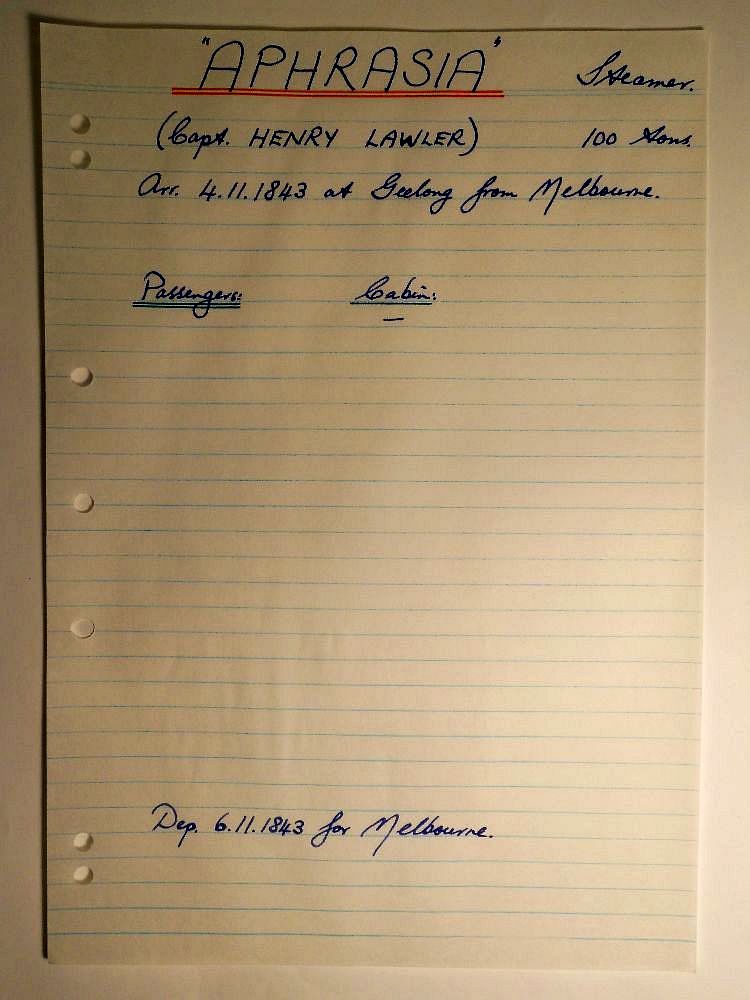 "APHRASIA" Steamer.
(Capt. HENRY LAWLER) 100 tons.
Arr. 4.11.1843 at Geelong from Melbourne.
Passengers: Cabin:
—
Dep. 6.11.1843 for Melbourne.